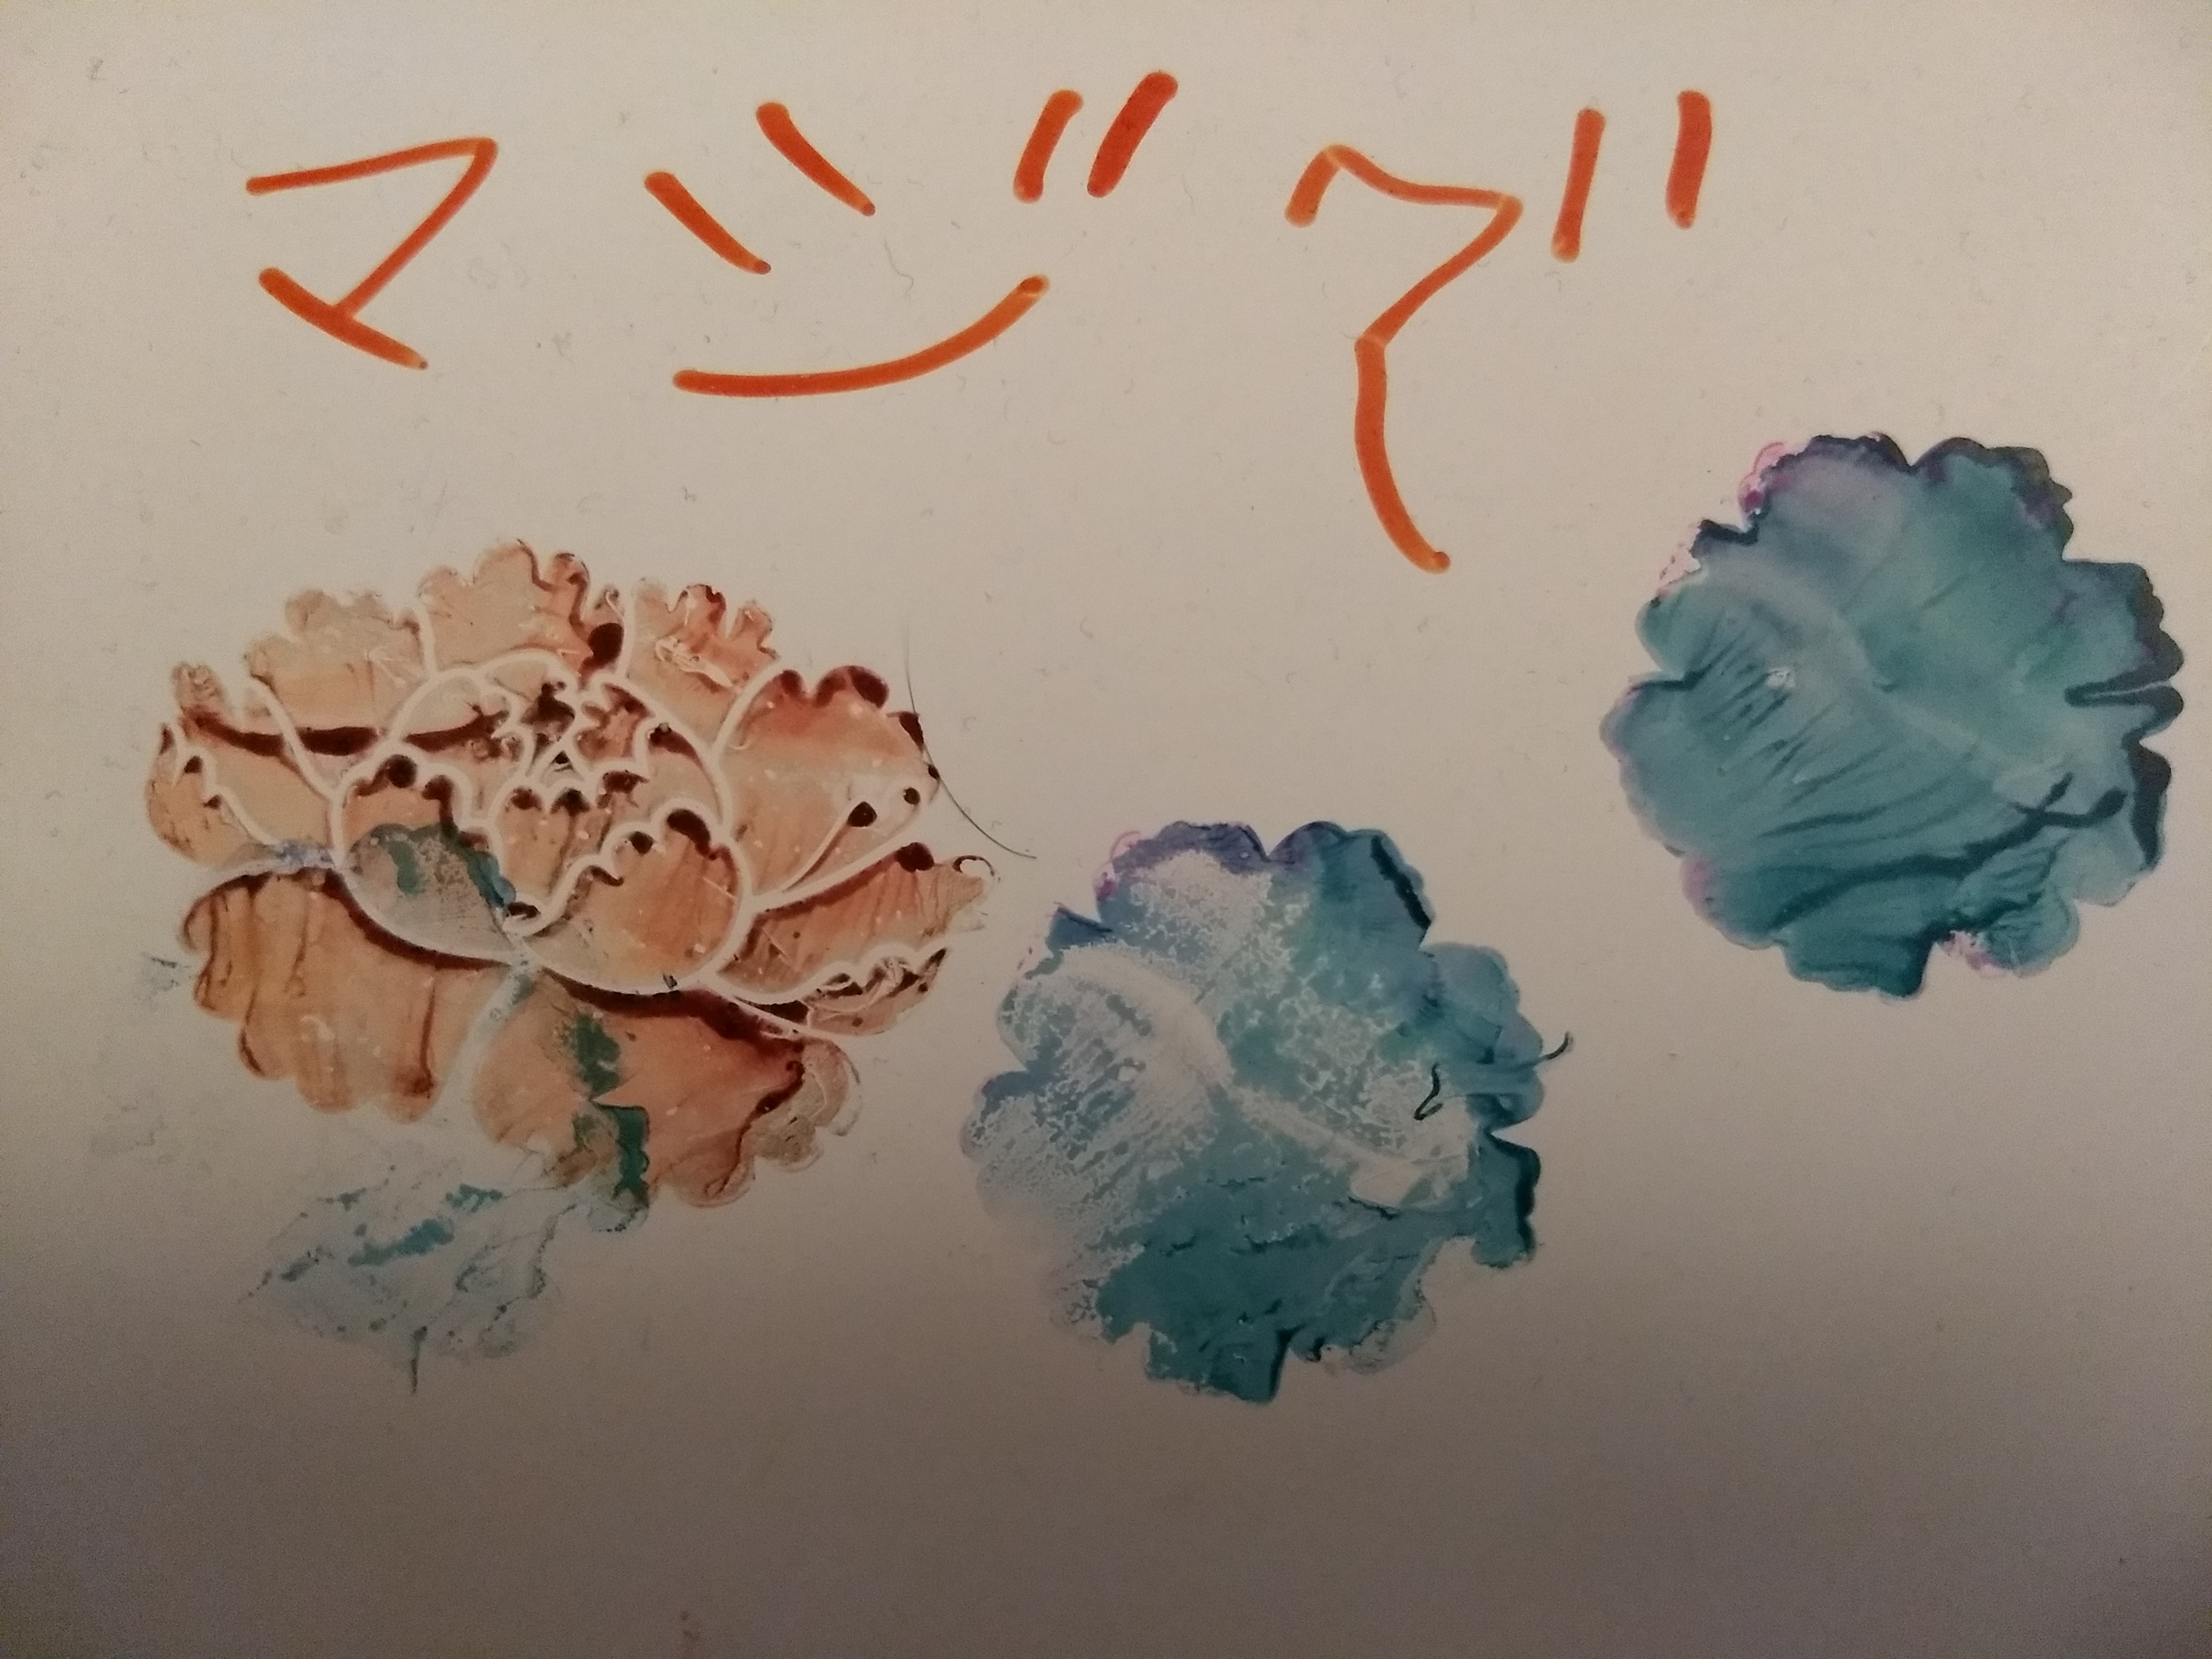 マジで